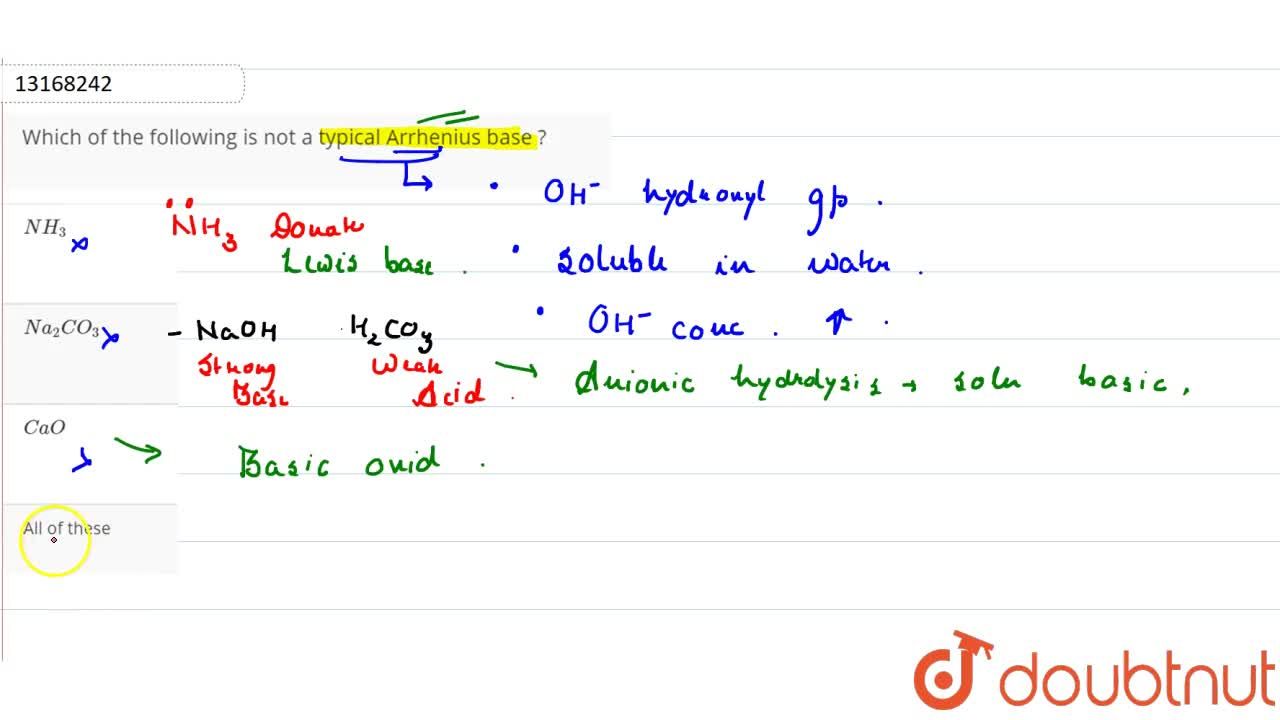 13168242
Which of the following is not a typical Arrhenius base ?
OH⁻ hydroxyl gp.
NH₃ NH₃ Donate
Lewis base. • soluble in water.
Na₂CO₃ - NaOH H₂CO₃ • OH⁻ conc. ↑.
Strong Weak
Base Acid. → Anionic hydrolysis → soln basic,
CaO
→ Basic oxid.
All of these
doubtnut